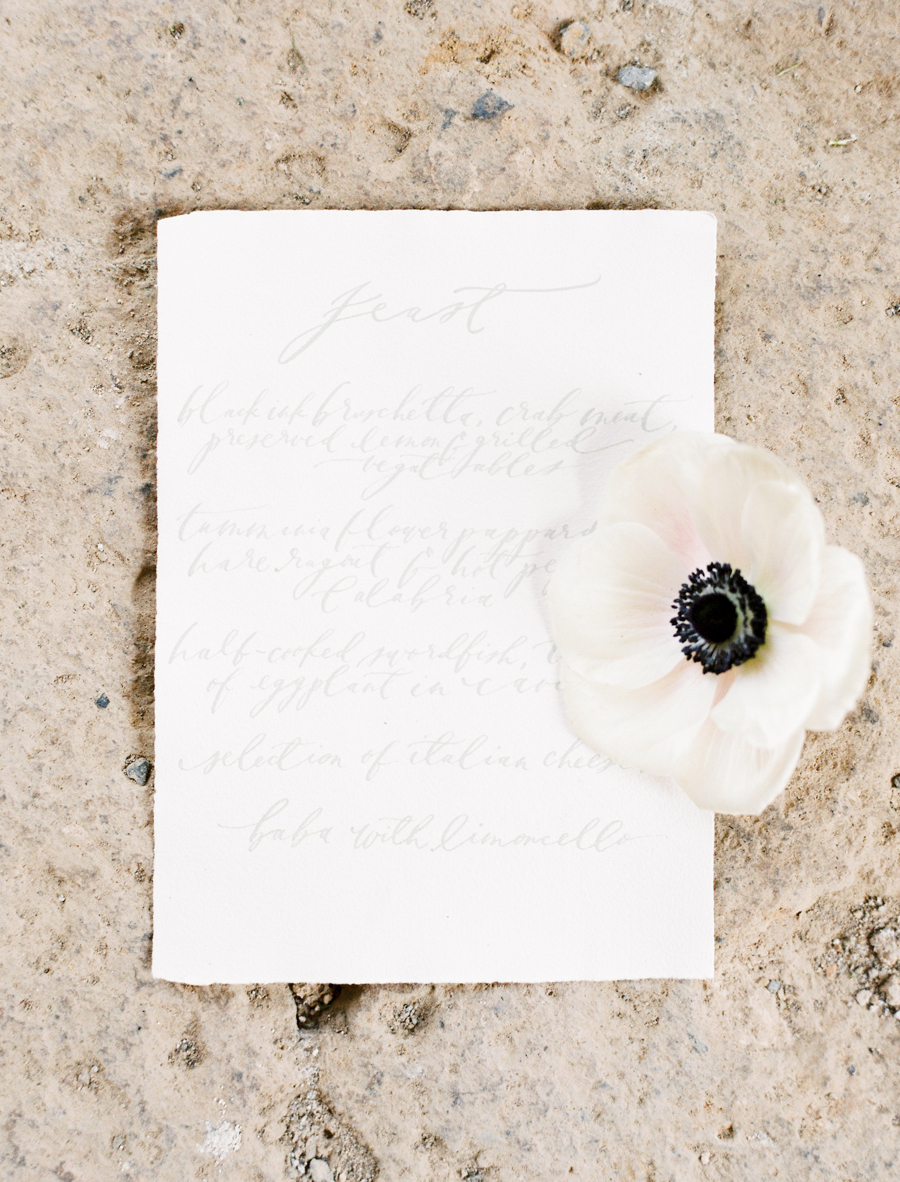 feast
black ink bruschetta, crab meat,
preserved lemon & grilled
vegatables
tumminia flower pappards
hare ragout & hot pe
Calabria
half-cooked swordfish,
of eggplant in
selection of italian cheese
baba with limoncello